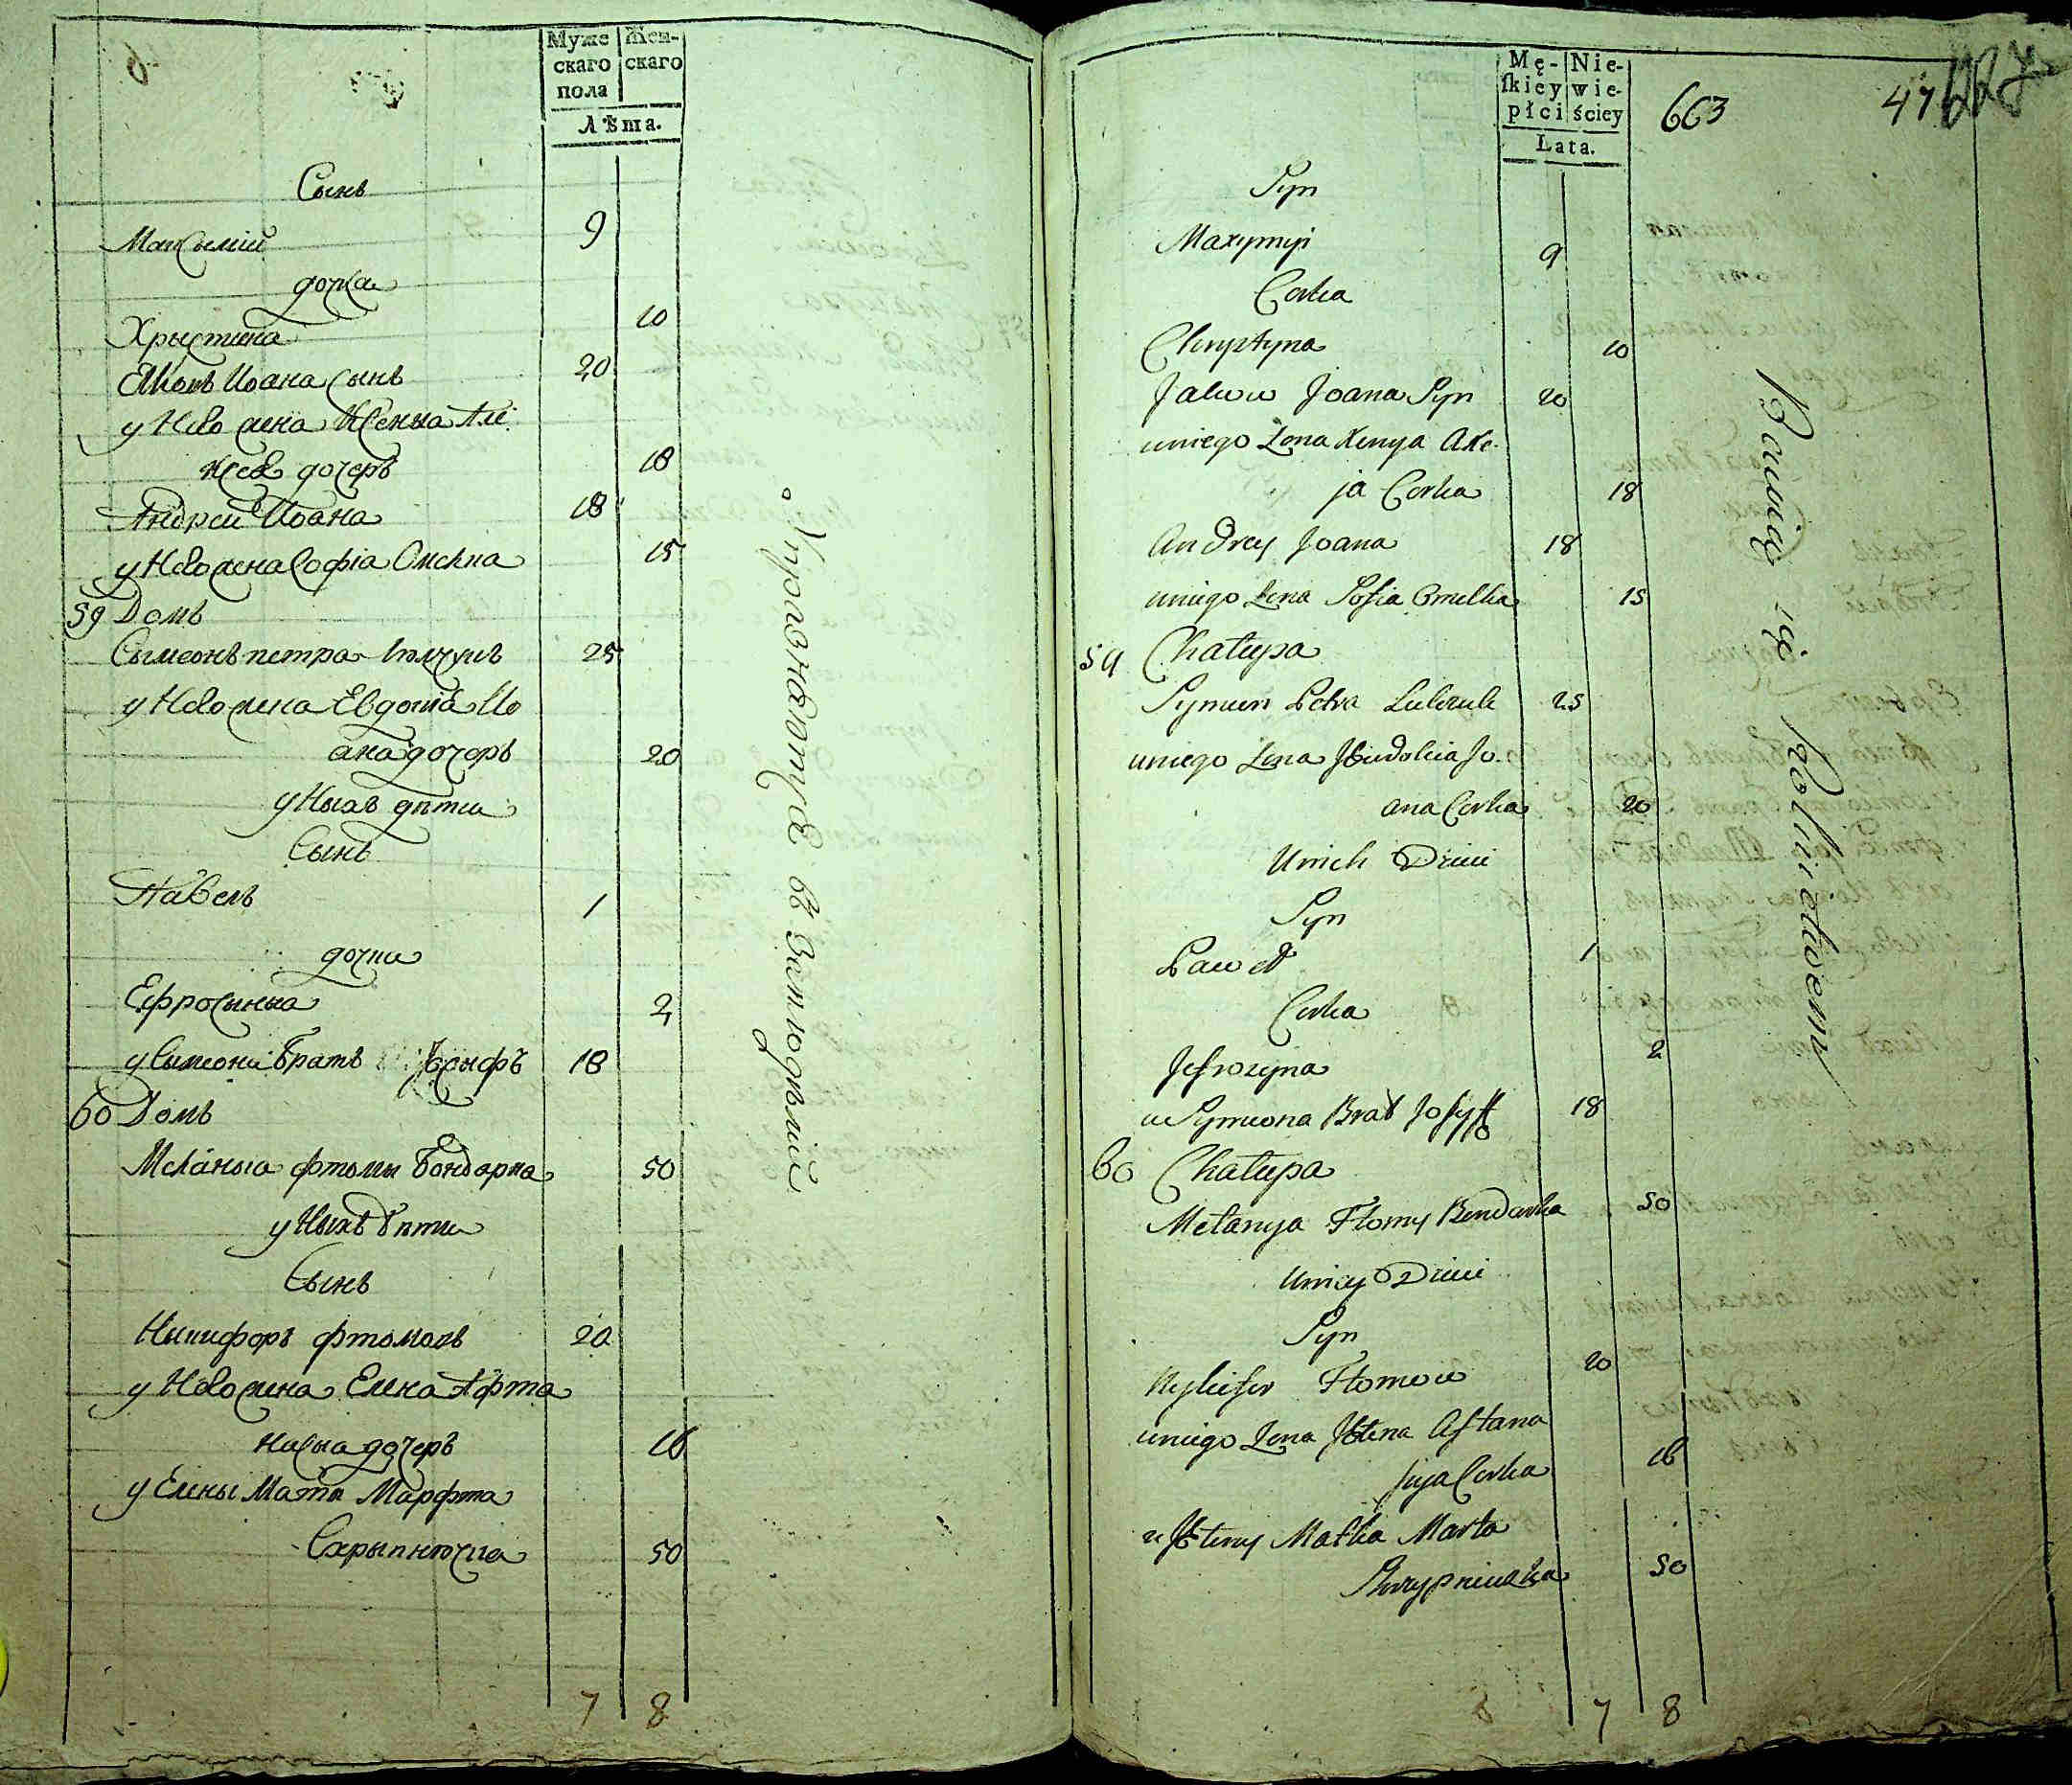 Муже
скаго
пола
Жен-
скаго
Лѣта.
Сынъ
Максымій 9
дочка
Хрыстина 10
Яковъ Иоана Сынъ 20
у Него жена Ксенья Але
ксея дочеръ 18
Андрей Иоана 18
у Него жена Софіа Омелка 15
59 Домъ
Сымеонъ петра 25
у Него жена Евдокіа Ио
ана дочеръ 20
у Ныхъ дѣти
Сынъ
Павелъ 1
дочка
Ефросынья 2
у Сымеона братъ Іосыфъ 18
60 Домъ
Меланья фтомы Бондарка 50
у Ныхъ дѣти
Сынъ
Никифоръ фтомовъ 20
у Него жена Елена Афта
насыа дочеръ 16
у Елены Матка Марфта
Скрыпнючка 50
7 8
Упражнаются въ Земледѣліи
Mę-
skiey
płci
Nie-
wie-
ściey
Lata.
663
47
Syn
Maxymyi 9
Corka
Chryztyna 10
Jakow Joana Syn 20
uniego Zona Xenya Ale-
ja Corka 18
Andrey Joana 18
uniego Zona Sofia Omelka 15
59 Chałupa
Symeon Petra 25
uniego Zona Jewdokia Jo-
ana Corka 20
Unich Dzieci
Syn
Paweł 1
Corka
Jefrozyna 2
u Symeona Brat Josyff 18
60 Chałupa
Mełanya Ftomy Bondarka 50
Unicy Dzieci
Syn
Nykifor Ftomow 20
uniego Zona Jełena Aftana
syja Corka 16
u Jełeny Matka Marta
Skrypniuczka 50
7 8
Bawią się Rolnictwem